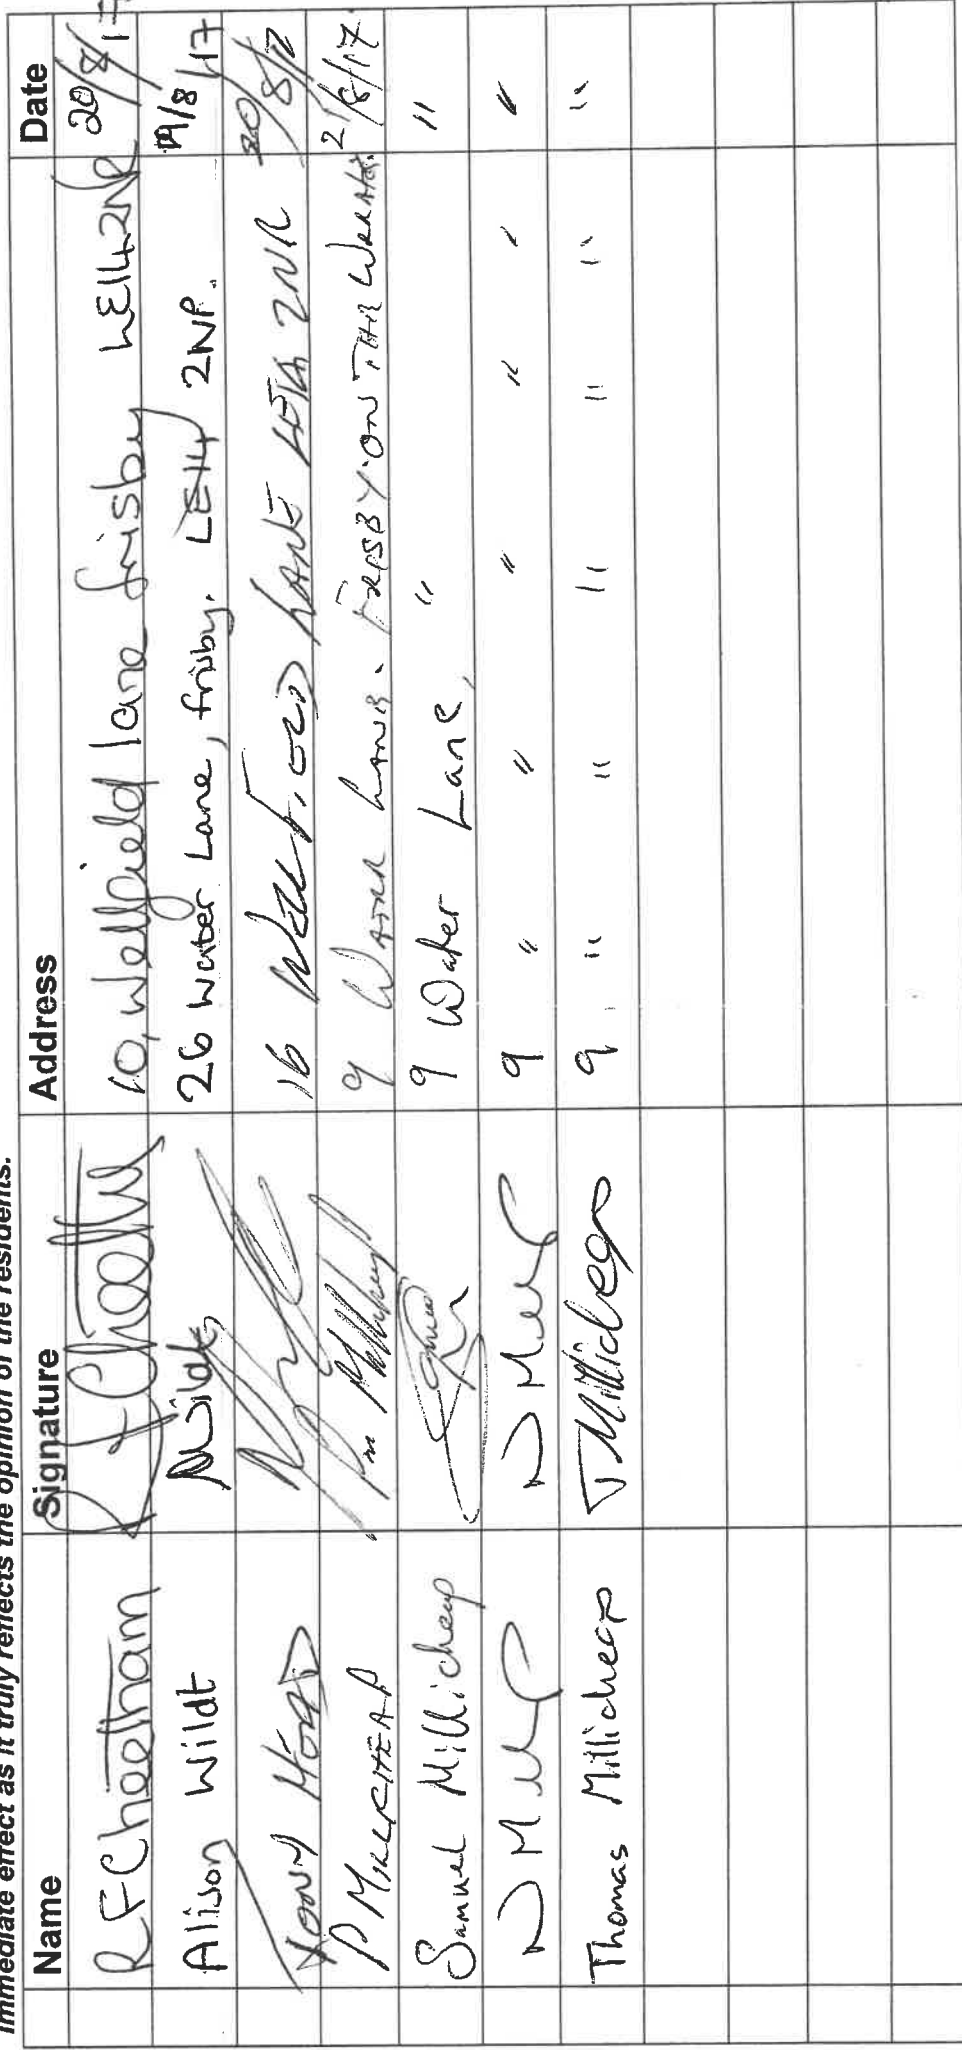 immediate effect as it truly reflects the opinion of the residents.
Name Signature Address Date
R F Cheetham R F Cheetham 10, Wellfield lane frisby LE14 2NR 20/8/17
Alison Wildt AWildt 26 Water Lane, frisby. LE14 2NP. 19/8/17
16 LANE LE14 2NR 20/8/17
P MILLICHEAP 9 WATER LANE. FRISBY-ON THE WREAKE. 21/8/17
Samuel Millicheap 9 Water Lane, " "
N Mill N Mill 9 " " " " " "
Thomas Millicheap TMillicheap 9 " " " " " "